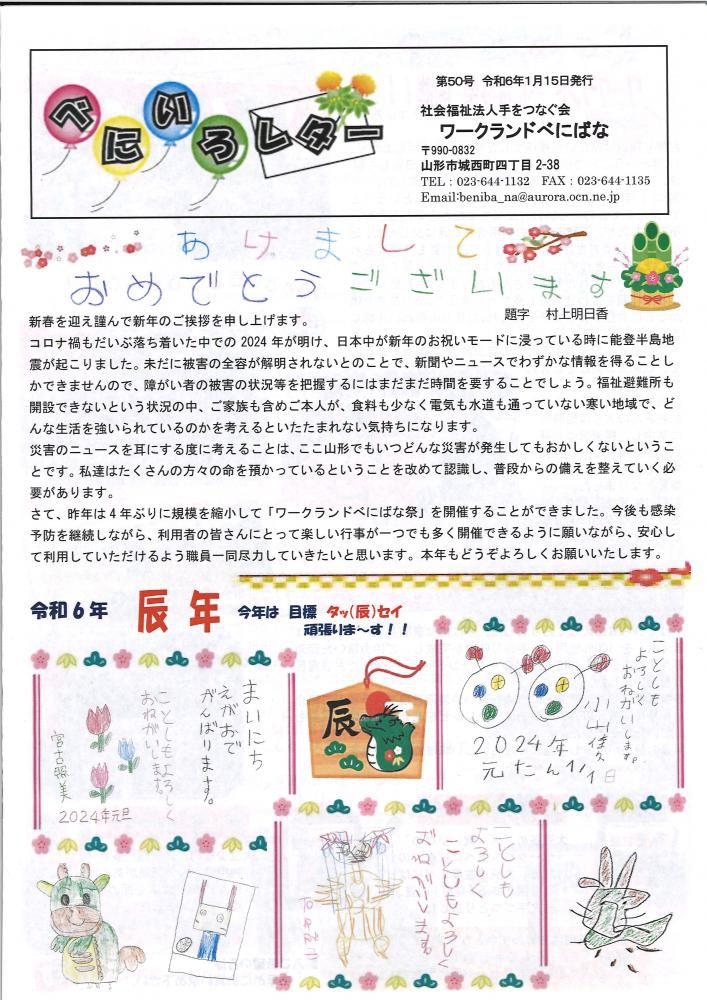 べにいろレター
第50号 令和6年1月15日発行
社会福祉法人手をつなぐ会
ワークランドべにばな
〒990-0832
山形市城西町四丁目 2-38
TEL：023-644-1132 FAX：023-644-1135
Email:beniba_na@aurora.ocn.ne.jp
あけまして
おめでとうございます
題字 村上明日香
新春を迎え謹んで新年のご挨拶を申し上げます。
コロナ禍もだいぶ落ち着いた中での 2024 年が明け、日本中が新年のお祝いモードに浸っている時に能登半島地
震が起こりました。未だに被害の全容が解明されないとのことで、新聞やニュースでわずかな情報を得ることし
かできませんので、障がい者の被害の状況等を把握するにはまだまだ時間を要することでしょう。福祉避難所も
開設できないという状況の中、ご家族も含めご本人が、食料も少なく電気も水道も通っていない寒い地域で、ど
んな生活を強いられているのかを考えるといたたまれない気持ちになります。
災害のニュースを耳にする度に考えることは、ここ山形でもいつどんな災害が発生してもおかしくないというこ
とです。私達はたくさんの方々の命を預かっているということを改めて認識し、普段からの備えを整えていく必
要があります。
さて、昨年は4年ぶりに規模を縮小して「ワークランドべにばな祭」を開催することができました。今後も感染
予防を継続しながら、利用者の皆さんにとって楽しい行事が一つでも多く開催できるように願いながら、安心し
て利用していただけるよう職員一同尽力していきたいと思います。本年もどうぞよろしくお願いいたします。
令和6年 辰年 今年は 目標 タッ(辰)セイ
頑張りま～す！！
まいにち
えがおで
がんばります。
ことしもよろしく
おねがいします。
宮古照美
2024年元旦
辰
ことしも
よろしく
おねがいします。
小山佳久
2024年
元たん1/1日
ことしも
よろしく
ことしもよろしく
おねがいします。